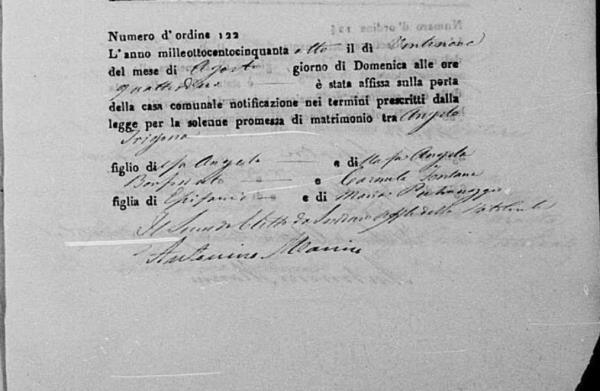 Numero d'ordine 122
L'anno milleottocentocinquanta otto il di Ventinove
del mese di Agosto giorno di Domenica alle ore
è stata affissa sulla porta
della casa comunale notificazione nei termini prescritti dalla
legge per la solenne promessa di matrimonio tra Angelo
figlio di fu Angelo e di fu Angela
e Carmela Fontana
figlia di Epifanio e di Maria
Il Secondo Eletto da
Antonino Marino